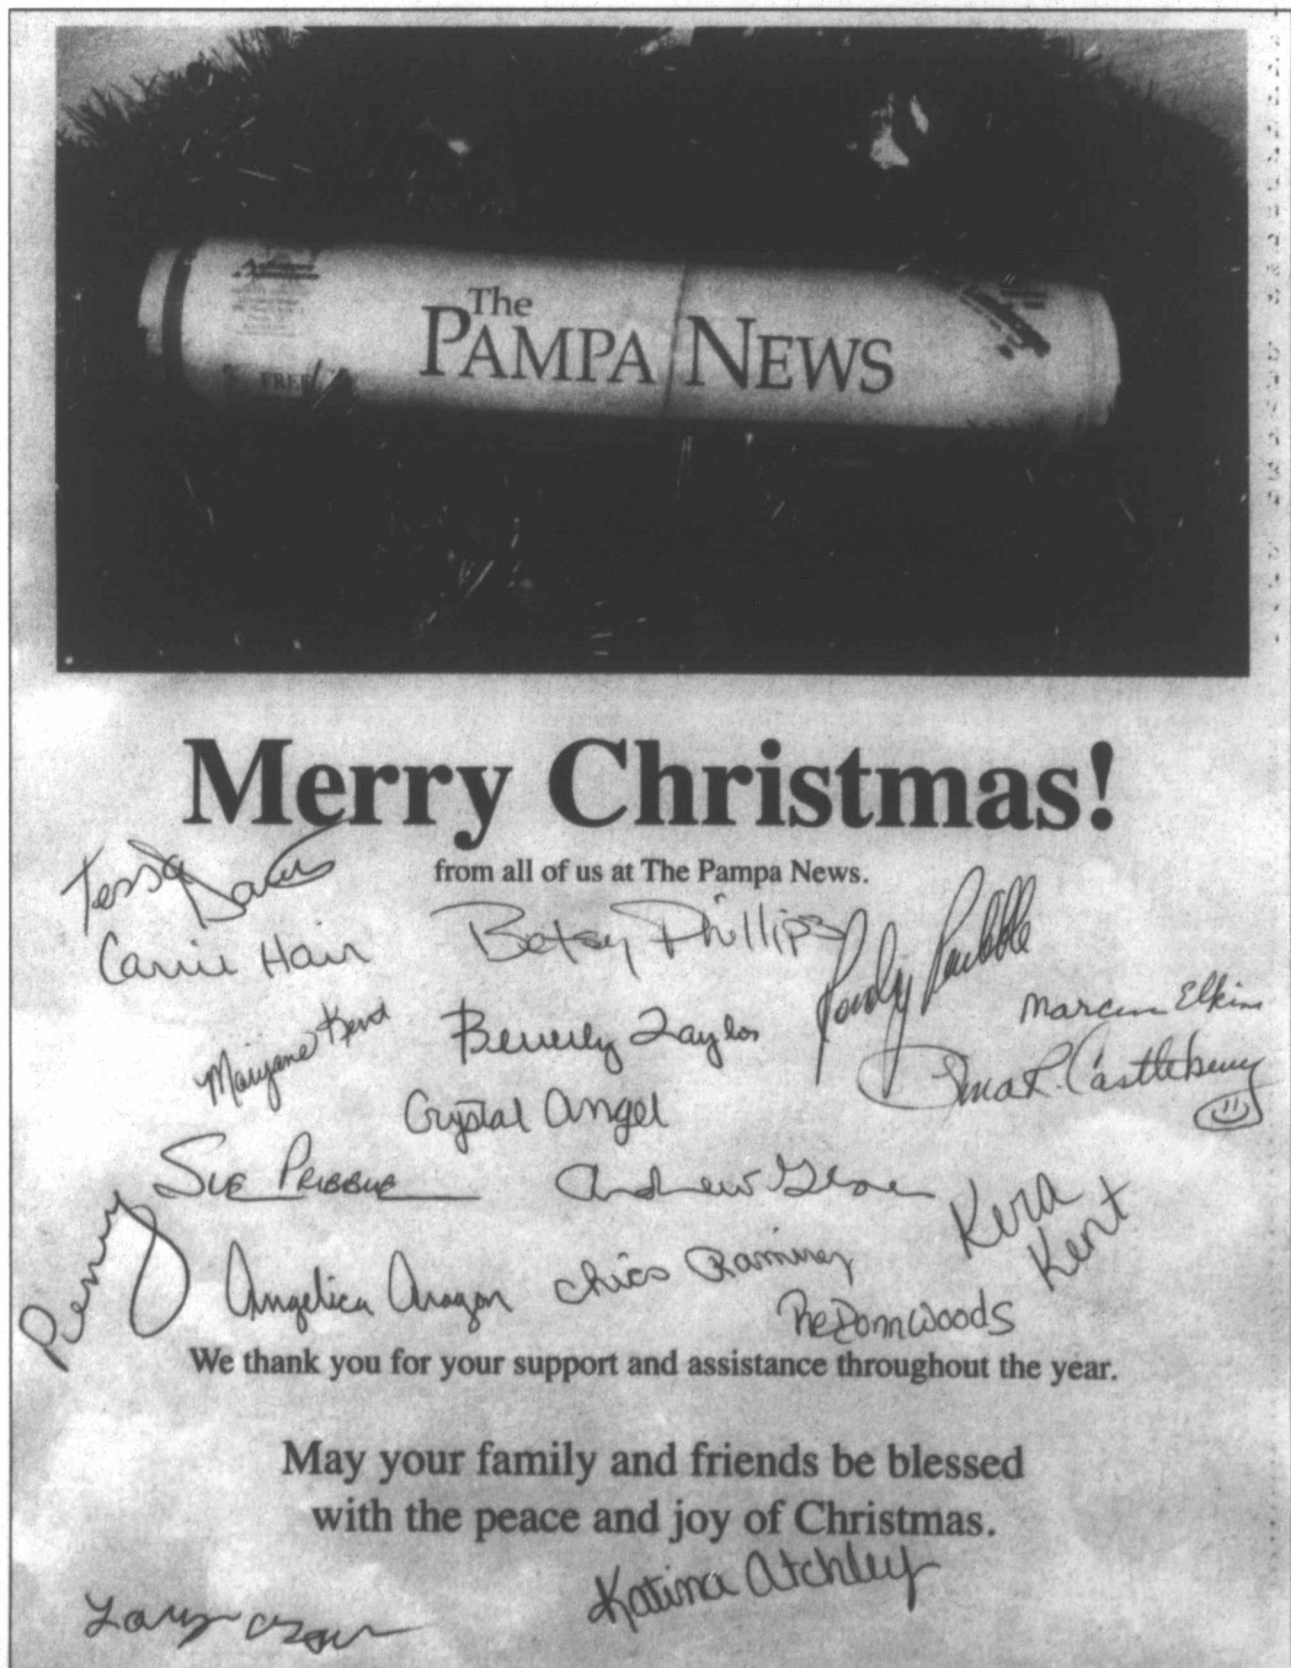 The
PAMPA NEWS
FREE
Merry Christmas!
from all of us at The Pampa News.
Tessa Davis
Carrie Hair
Betsy Phillips
Marcus Elkins
Maryjane Kent
Beverly Taylor
R. Castleberry
Crystal Angel
Sue Pribble
Andrew
Kera
Kent
Penny
Angelica Aragon
Chico Ramirez
ReDonn Woods
We thank you for your support and assistance throughout the year.
May your family and friends be blessed
with the peace and joy of Christmas.
Katina Atchley